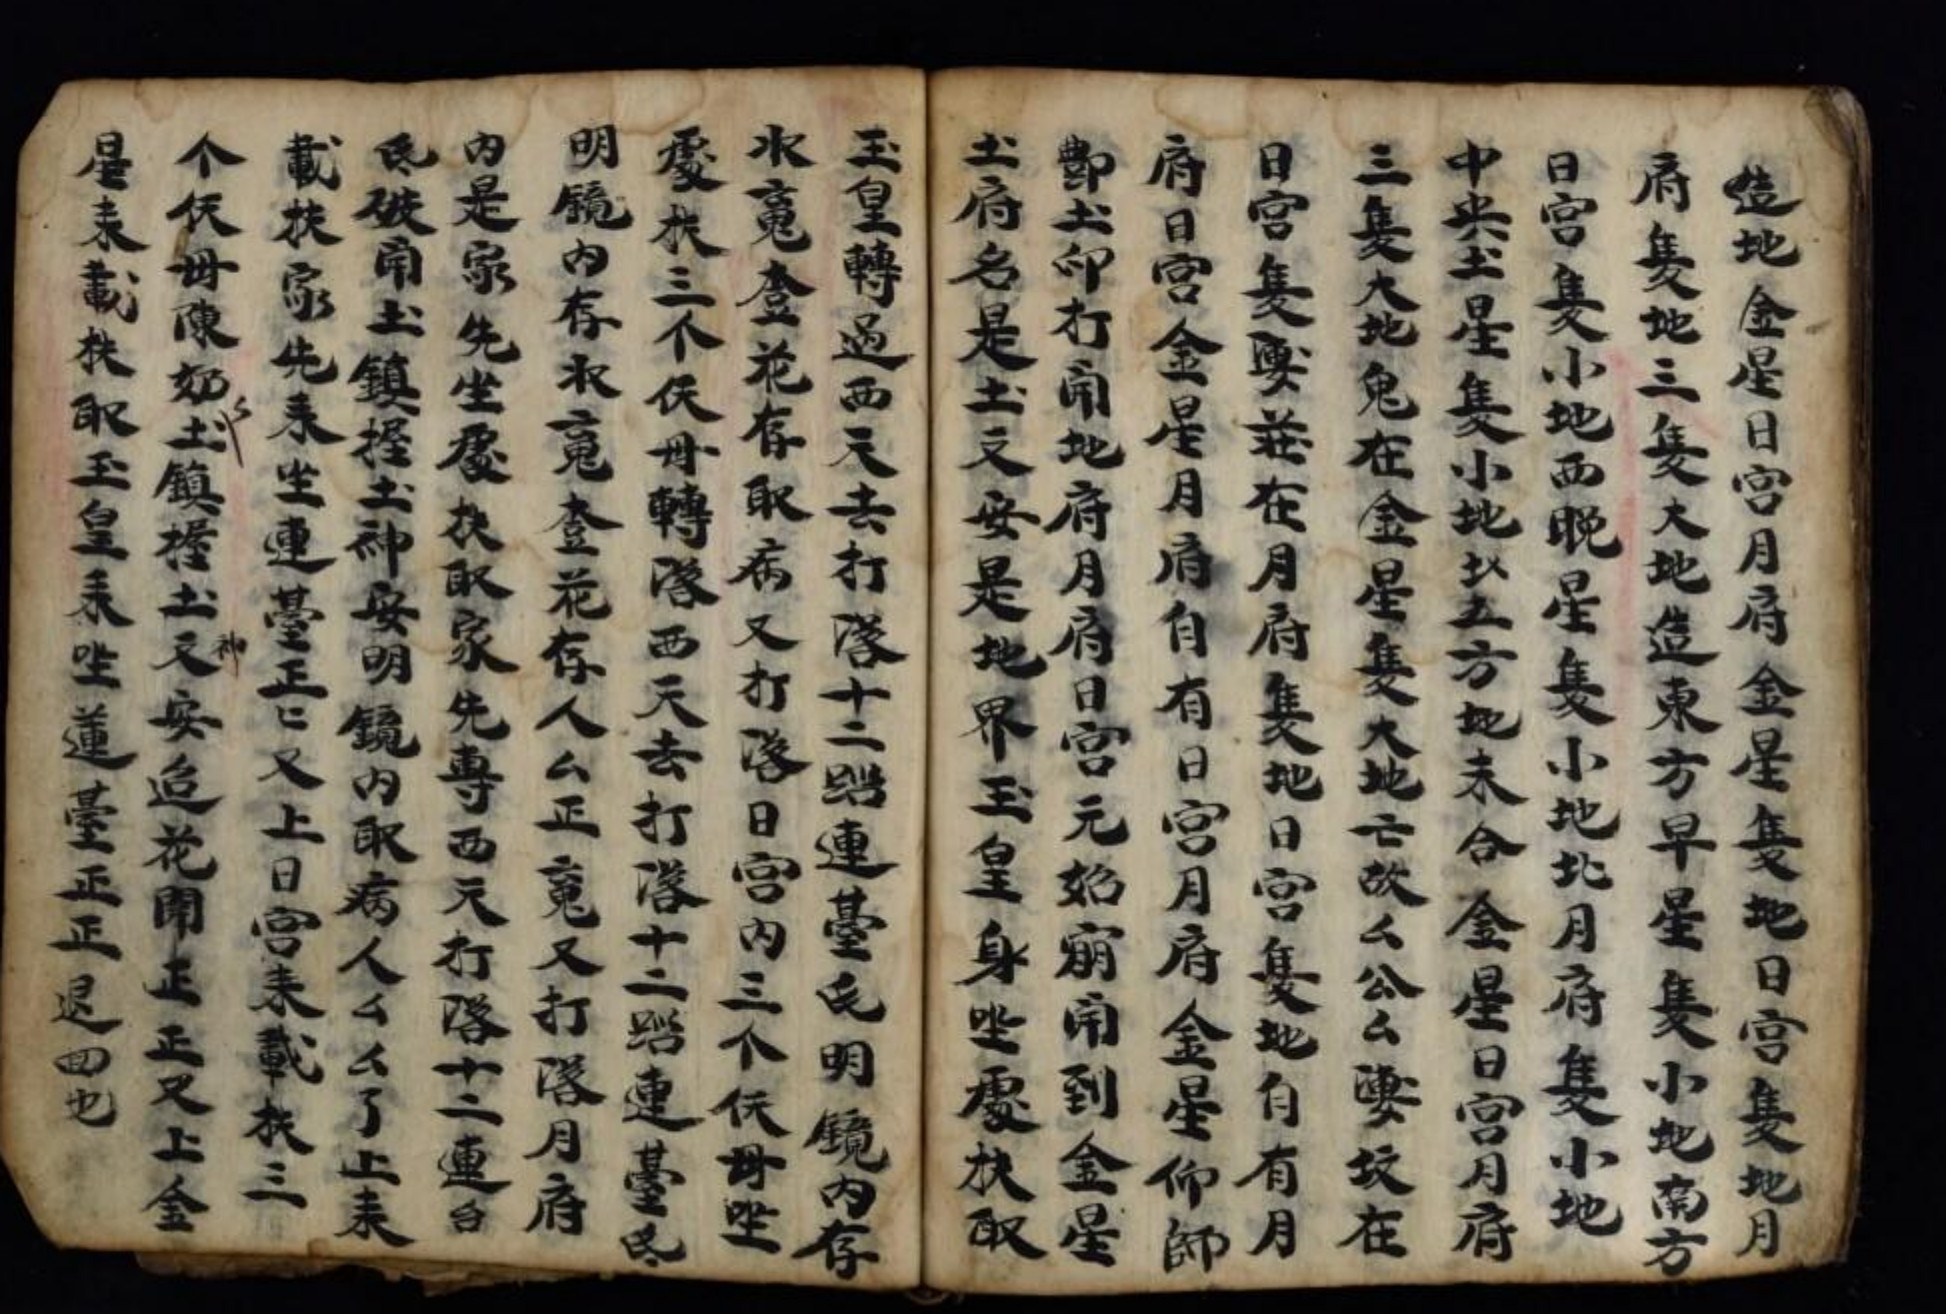 造地金星日宮月府金星隻地日宮隻地月
府隻地三隻大地造東方早星隻小地南方
日宮隻小地西晚星隻小地北月府隻小地
中央土星隻小地圤五方地未合金星日宮月府
三隻大地鬼在金星隻大地亡故厶公厶婆坟在
日宮隻婆莊在月府隻地日宮隻地自有月
府日宮金星月府自有日宮月府金星仰師
酆土印打開地府月府日宮元始崩開到金星
土府名是土又安是地界玉皇身坐處扶取
玉皇轉過西天去打落十二踏連臺氐明鏡内存
水䰟登花存取病又打落日宮内三个仸毋坐
處扶三个仸毋轉落西天去打落十二踏連臺氐
明鏡内存水䰟登花存人厶正䰟又打落月府
内是家先坐處扶取家先專西天打落十二連台
氐破開土鎮握土神安明鏡内取病人厶厶了上來
載扶家先來坐連臺正〻又上日宮來載扶三
个仸毋陳奶土鎮握土神又安造花開正正又上金
星來載扶取玉皇來坐蓮臺正正退回也